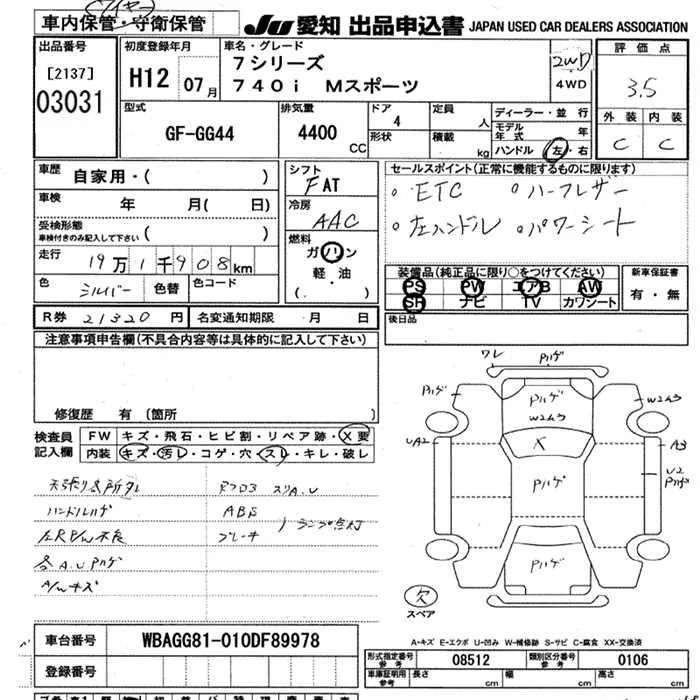 車内保管・守衛保管
JU 愛知 出品申込書 JAPAN USED CAR DEALERS ASSOCIATION
出品番号
[2137]
03031
初度登録年月
H12 07月
車名・グレード
7シリーズ
740i Mスポーツ
2WD
4WD
評価点
3.5
外装 内装
C C
型式
GF-GG44
排気量
4400 CC
ドア
4
形状
定員
人
積載
kg
ディーラー・並行
モデル年式 年
ハンドル 左・右
車歴
自家用・( )
車検 年 月( 日)
受検形態
車検付きのみ記入して下さい ( )
走行 19万1千908km
色 シルバー 色替 色コード
シフト
FAT
冷房
AAC
燃料
ガソリン
軽・油
( . )
セールスポイント(正常に機能するものに限ります)
◦ETC ◦ハーフレザー
◦左ハンドル ◦パワーシート
装備品(純正品に限り○をつけてください)
PS PW エアB AW
SR ナビ TV カワシート
新車保証書
有・無
後日品
R券 21320 円 名変通知期限 月 日
注意事項申告欄(不具合内容等は具体的に記入して下さい)
修復歴 有(箇所 )
検査員記入欄
FW キズ・飛石・ヒビ割・リペア跡・X要
内装 キズ・汚レ・コゲ・穴・スレ・キレ・破レ
ハンドルハゲ
ABS
ブレーキ
ランプ点灯
A/Wキズ
ワレ
Pハゲ
Pハゲ
Pハゲ
W2A3
W2A3
UA2
A3
X
U2
Pハゲ
Pハゲ
Pハゲ
欠
スペア
A-キズ E-エクボ U-凹み W-補修跡 S-サビ C-腐食 XX-交換済
車台番号 WBAGG81-010DF89978
登録番号
形式指定番号 参考 08512
類別区分番号 参考 0106
車庫証明用 参考 長さ cm 幅 cm 高さ cm